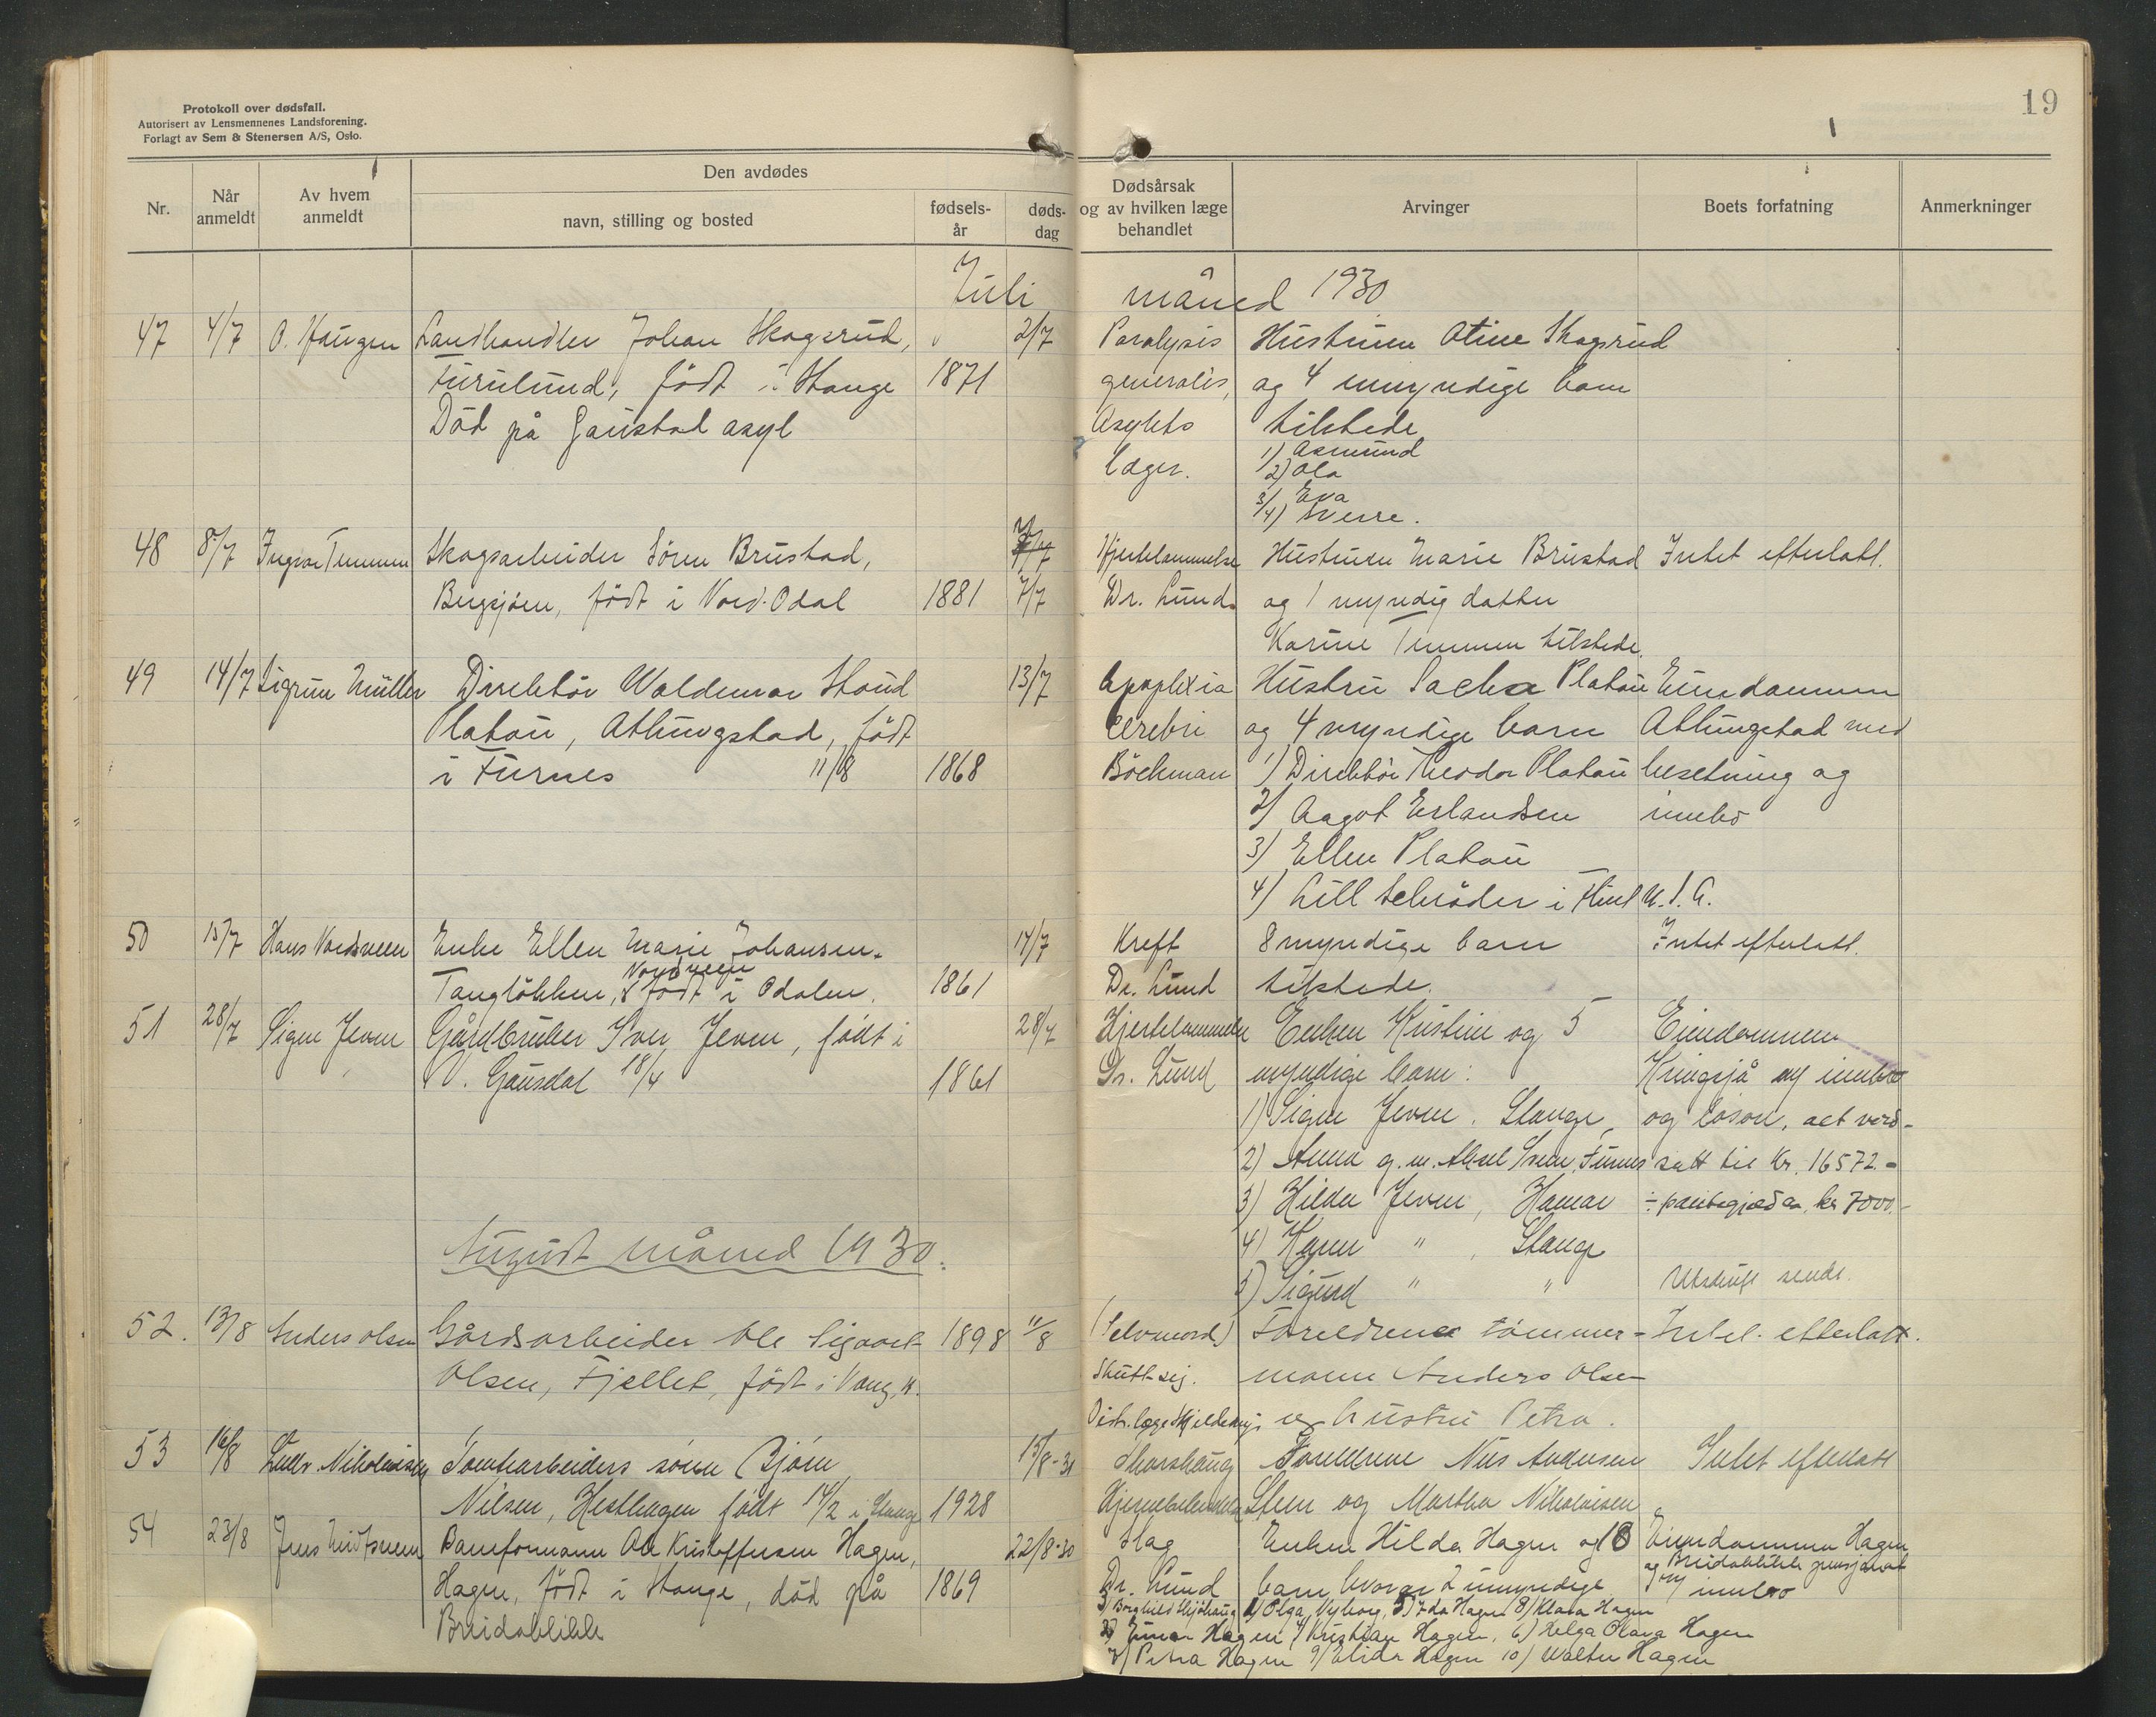 Protokoll over dødsfall.
Autorisert av Lensmennenes Landsforening.
Forlagt av Sem & Stenersen A/S, Oslo.
19
Nr.
Når anmeldt
Av hvem anmeldt
Den avdødes
navn, stilling og bosted
fødsels-år
døds-dag
Dødsårsak og av hvilken læge behandlet
Arvinger
Boets forfatning
Anmerkninger
Juli måned 1930
47 4/7 O. Haugen Landhandler Johan Skogsrud, 2/7 Paralysis Hustruen Otine Skogsrud
Furulund, født i Stange 1871 generalis, og 4 umyndige barn
Død på Gaustad asyl Asylets tilstede
læger. 1) Asmund
2) Ola
3) Eva
4) Sverre.
48 8/7 Ingvar Skogsarbeider Søren Brustad, Hjertelammelse Hustruen Marie Brustad Intet efterlatt.
Bergsjøen, født i Nord-Odal 1881 7/7 Dr. Lund og 1 myndig datter
Karine tilstede.
49 14/7 Sigrun Müller Direktør Waldemar Stoud 13/7 Apoplexia Hustru Platou Eiendommen
Platou, Atlungstad, født cerebri og 4 myndige barn Atlungstad med
i Furnes 11/8 1868 Böckman 1) Direktør Theodor Platou besetning og
2) Aagot Erlandsen innbo
3) Ellen Platou
4) Lill Schrøder i Flint U.S.A.
50 15/7 Hans Nordsveen Enke Ellen Marie Johansen. 14/7 Kreft 8 myndige barn Intet efterlatt.
Tangløkken, født i Odalen. 1861 Dr. Lund tilstede.
51 28/7 Signe Jevne Gårdbruker Iver Jevne, født i 28/7 Hjertelammelse Enken Kristine og 5 Eiendommen
V. Gausdal 18/4 1861 Dr. Lund myndige barn: Kringsjå m/ innbo
1) Signe Jevne, Stange, og løsøre, alt verd-
2) Anna g.m. Furnes satt til kr. 16572.-
3) Hilda Jevne, Hamar ÷ pantegjeld ca. kr 7000.-
4) Karen " , Stange
5) Sigurd " " Utskrift sendt.
August måned 1930.
52. 13/8 Anders Olsen Gårdsarbeider Ole Sigvart 1898 11/8 (Selvmord) Foreldrene tømmer- Intet efterlatt.
Olsen, Fjellet, født i Vang, H. Skutt sig. mann Anders Olsen
Distr. læge og hustru Petra.
53 16/8 Ludv. Nikolaisen Tomtearbeiders sønn Bjørn 15/8-30 Foreldrene Nils Andersen Intet efterlatt
Nilsen, Hesthagen født 14/2 i Stange 1928 Steen og Martha Nikolaisen
54 23/8 Jens Baneformann Ole Kristoffersen Hagen, 22/8-30 Slag Enken Hilda Hagen og 10 Eiendommen Hagen
Hagen, født i Stange, død på 1869 Dr. Lund barn hvorav 2 umyndige og Breidablikk pensjonat
m/ innbo
Breidablikk
3) Borghild Skjøhaug 4) Olga Nyborg, 5) Ida Hagen 8) Klara Hagen
2) Einar Hagen 1) Kristian Hagen, 6) Helga Olava Hagen
7) Petra Hagen 9) Elida Hagen 10) Walter Hagen